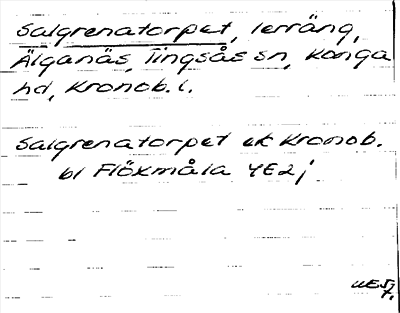 Salgrenatorpet, terräng,
Älganäs, Tingsås sn, Konga
hd, Kronob. l.
Salgrenatorpet ek Kronob.
bl Flöxmåla 4E2j